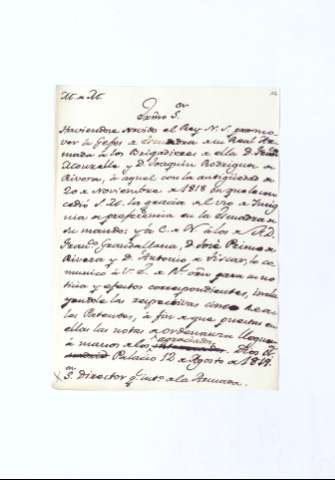 M. de M.
Exmo. Sor.
Haviendose servido el Rey N. S. promo-
ver à Gefes de Escuadra de su Real Ar-
mada à los Brigadieres de ella D.
D. Joaquin Rodriguez de
Rivera, à aquel con la antigüedad de
20 de Noviembre de 1818 en que le con-
cedió S. M. la gracia del uso de Insig-
nia de preferencia en la Escuadra de
su mando; y à C. de N. à los de F. D.
Franco. Grandallana, D. José Primo de
Rivera y D. Antonio de lo co-
munico à V. E. de Rl. orn. para su no-
ticia y efectos correspondientes, inclu-
yendole las respectivas Reales
Patentes, à fin de que puestas en
ellas las notas de ordenanza lleguen
à manos de los agraciados. Dios &a.
Palacio 12 de Agosto de 1819.
Sor. Director gl. into. de la Armada.